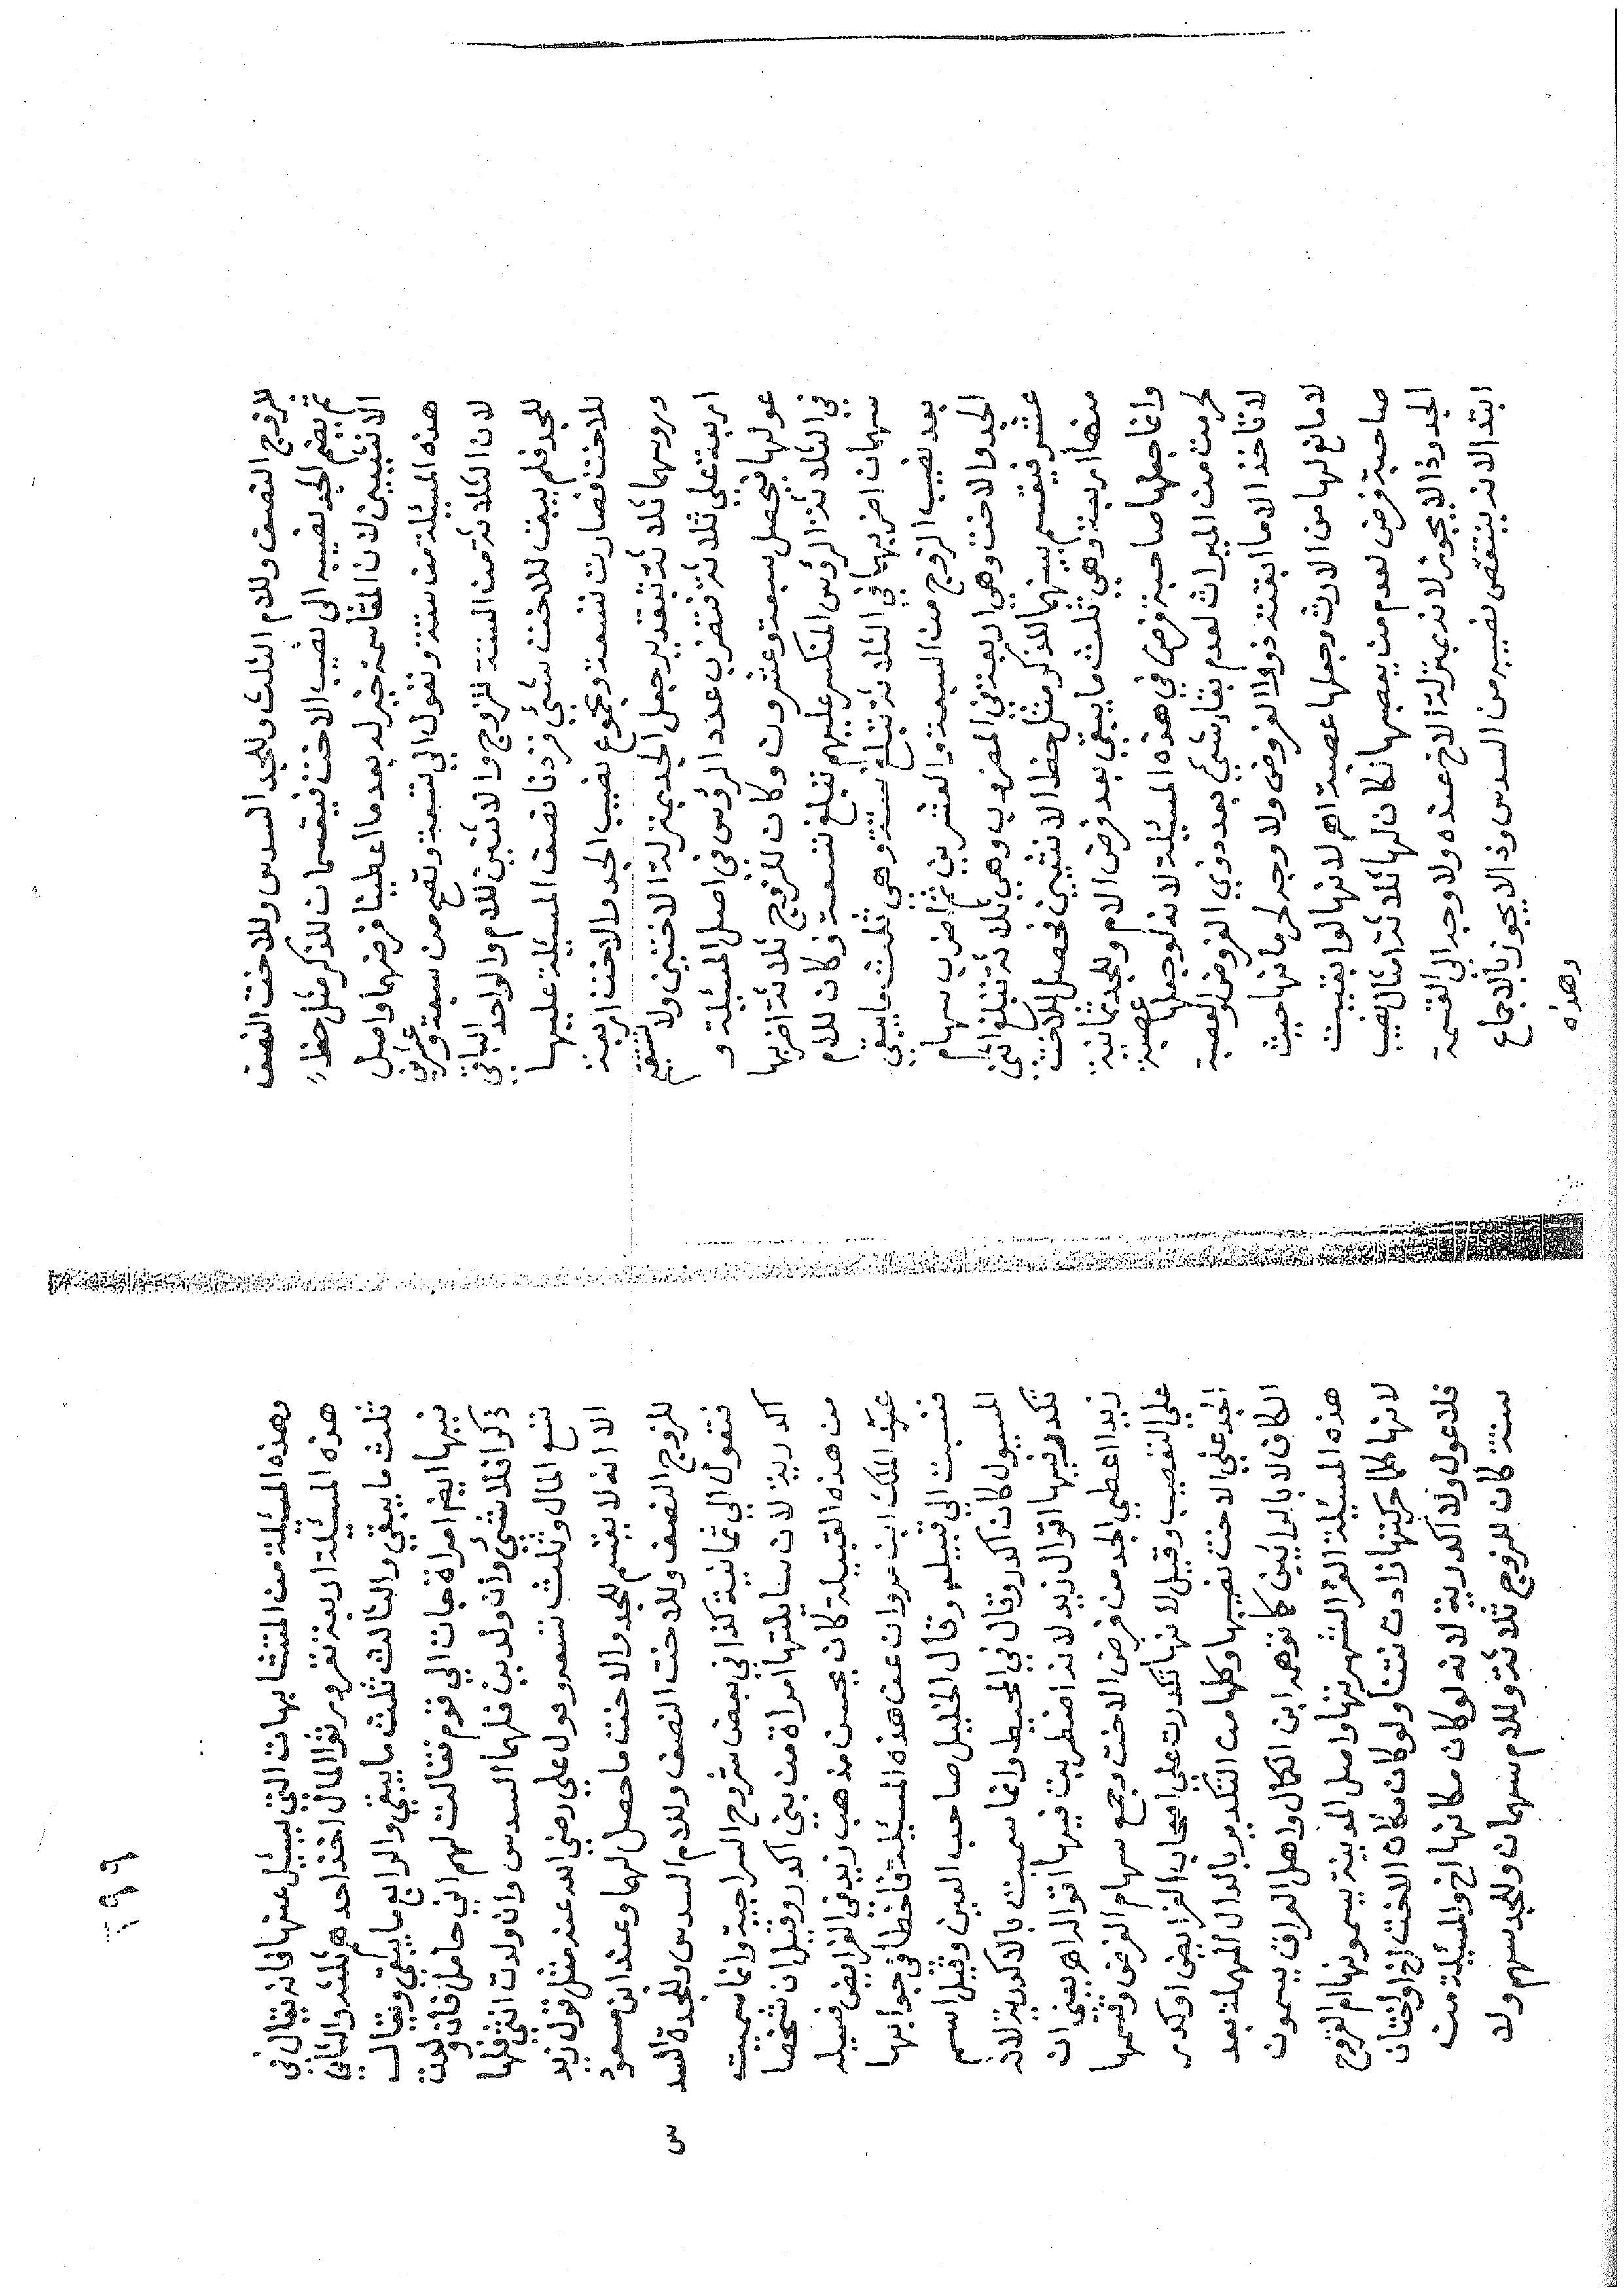 للزوج النصف وللام الثلث وللجد السدس وللاخت النصف
ثم يضم الجد نصيبه الى نصيب الاخت فيقسمان للذكر مثل حظ
الانثيين لان المقاسمة خير له بعد ما اعطينا فرضهما واصل
هذه المسئلة من ستة وتعول الي تسعة وتصح من سبعة وعشرين
لان الثلاثة من الستة للزوج والاثنين للام والواحد الباقي
للجد فلم يبق للاخت شئي فزدنا نصف المسئلة عليها
للاخت فصارت تسعة ومجموع نصيب الجد والاخت اربعة
وروسهما ثلاثة بتقدير جعل الجد بمنزلة الاختين ولا تستقيم
اربعة علي ثلاثة فتضرب عدد الرؤس في اصل المسئلة و
عولها فيحصل سبعة وعشرون وكان للزوج ثلاثة اضربها
في الثلاثة الرؤس المنكسر عليهم تبلغ تسعة وكان للام
سهمان اضربهما في الثلاثة تبلغ ستة وهي ثلث ما يبقي
بعد نصيب الزوج من السبعة والعشرين ثم اضرب سهام
الجد والاخت وهي اربعة في المضروب وهي ثلاثة تبلغ اثني
عشر فيقسم بينهما للذكر مثل حظ الانثيين فحصل للاخت
منها اربعة وهي ثلث ما يبقي بعد فرض الام وللجد ثمانية
وانما جعلها صاحبة فرض في هذه المسئلة لانه لو جعلها عصبة
لحرمت من الميراث لعدم بقاء شئي بعد ذوي الفروض والعصبة
لا تاخذ الا ما ابقته ذووا الفروض ولا وجه لحرمانها حيث
لا مانع لها من الارث وجعلها عصبة اهر لانها لو ابقيت
صاحبة فرض لعدم من يعصبها لكان لها ثلاثة امثال نصيب
الجد وذا لا يجوز لانه بمنزلة الاخ عنده ولا وجه الى القسمة
ابتدا لانه ينتقص نصيبه من السدس وذا لا يجوز بالاجماع
وهذه
٢٩٩
وهذه المسئلة من المتشابهات التي يسئل عنها فانه يقال في
هذه المسئلة اربعة نفر ورثوا المال اخذ احدهم ثلثه والثاني
ثلث ما يبقي والثالث ثلث ما يبقي والرابع ما يبقي ويقال
فيها ايضا امراة جات الي قوم فقالت لهم اني حامل فان ولدت
ذكرا فلا شئي وان ولدت انثي فلها
تسع المال وثلث تسعه وعول علي رضي الله عنه مثل قول زيد
الا انه لا يقسم للجد والاخت ما حصل لهما وعند ابن مسعود
للزوج النصف وللاخت النصف وللام السدس وللجد السدس
فتعول الي ثمانية كذا في بعض شروح السراجية وانما سميت
اكدرية لان سايلتها امراة من بني اكدر وقيل ان شخصا
من هذه القبيلة كان يحسن مذهب زيد في الفرايض فسيله
عبد الملك ابن مروان عن هذه المسئلة فاخطأ في جوابها
فنسبت الي قبيلته وقال الخليل صاحب العين وقيل اسم
المسيول كان اكدر وقال في المحيط وانما سميت بالاكدرية لانه
تكدر فيها اقوال زيد لانه اضطربت فيها اقواله اهر يعني ان
زيدا اعطي الجد من فرض الاخت وجمع سهام الفرض وقسمها
علي التعصيب وقيل لانها تكدرت علي اصحاب الفرايض او كدر
الجد علي الاخت نصيبها وكلها من التكدير بالدال المهملة بعد
الكاف لا بالرائين كما توهمه ابن الكمال واهل العراق يسمون
هذه المسئلة الغرا لشهرتها واصل المدينة يسمونها ام الفروج
لانها كلما حركتها زادت نتنا ولو كان مكان الاخت اخ او اختان
فلا عول ولا اكدرية لانه لو كان مكانها اخ والمسئلة من
ستة كان للزوج ثلاثة وللام سهمان وللجد سهم ولا